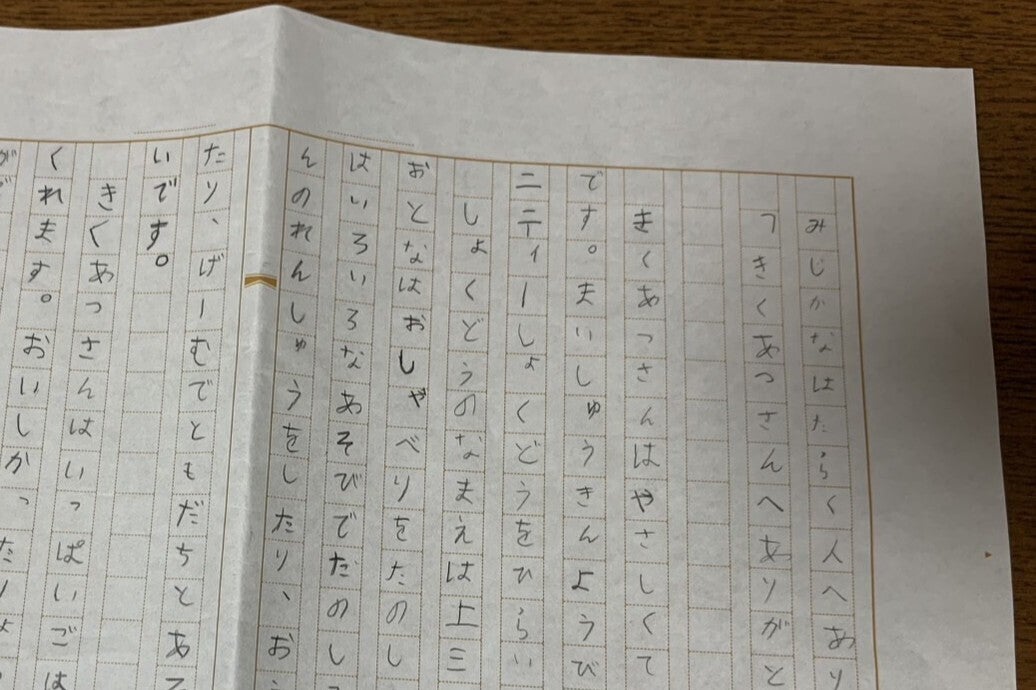 みじかなはたらく人へあり
つきくあつさんへありがと
きくあつさんはやさしくて
です。まいしゅうきんようび
ニティーしょくどうをひらい
しょくどうのなまえは上三
おとなはおしゃべりをたのし
はいろいろなあそびでたのし
んのれんしゅうをしたり、お
たり、げーむでともだちとあ
いです。
きくあっさんはいっぱいごは
くれます。おいしかったりよ